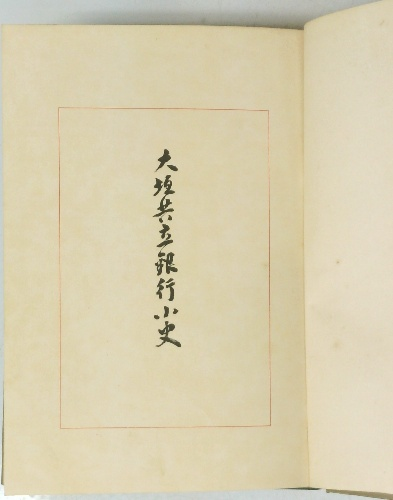 大垣共立銀行小史